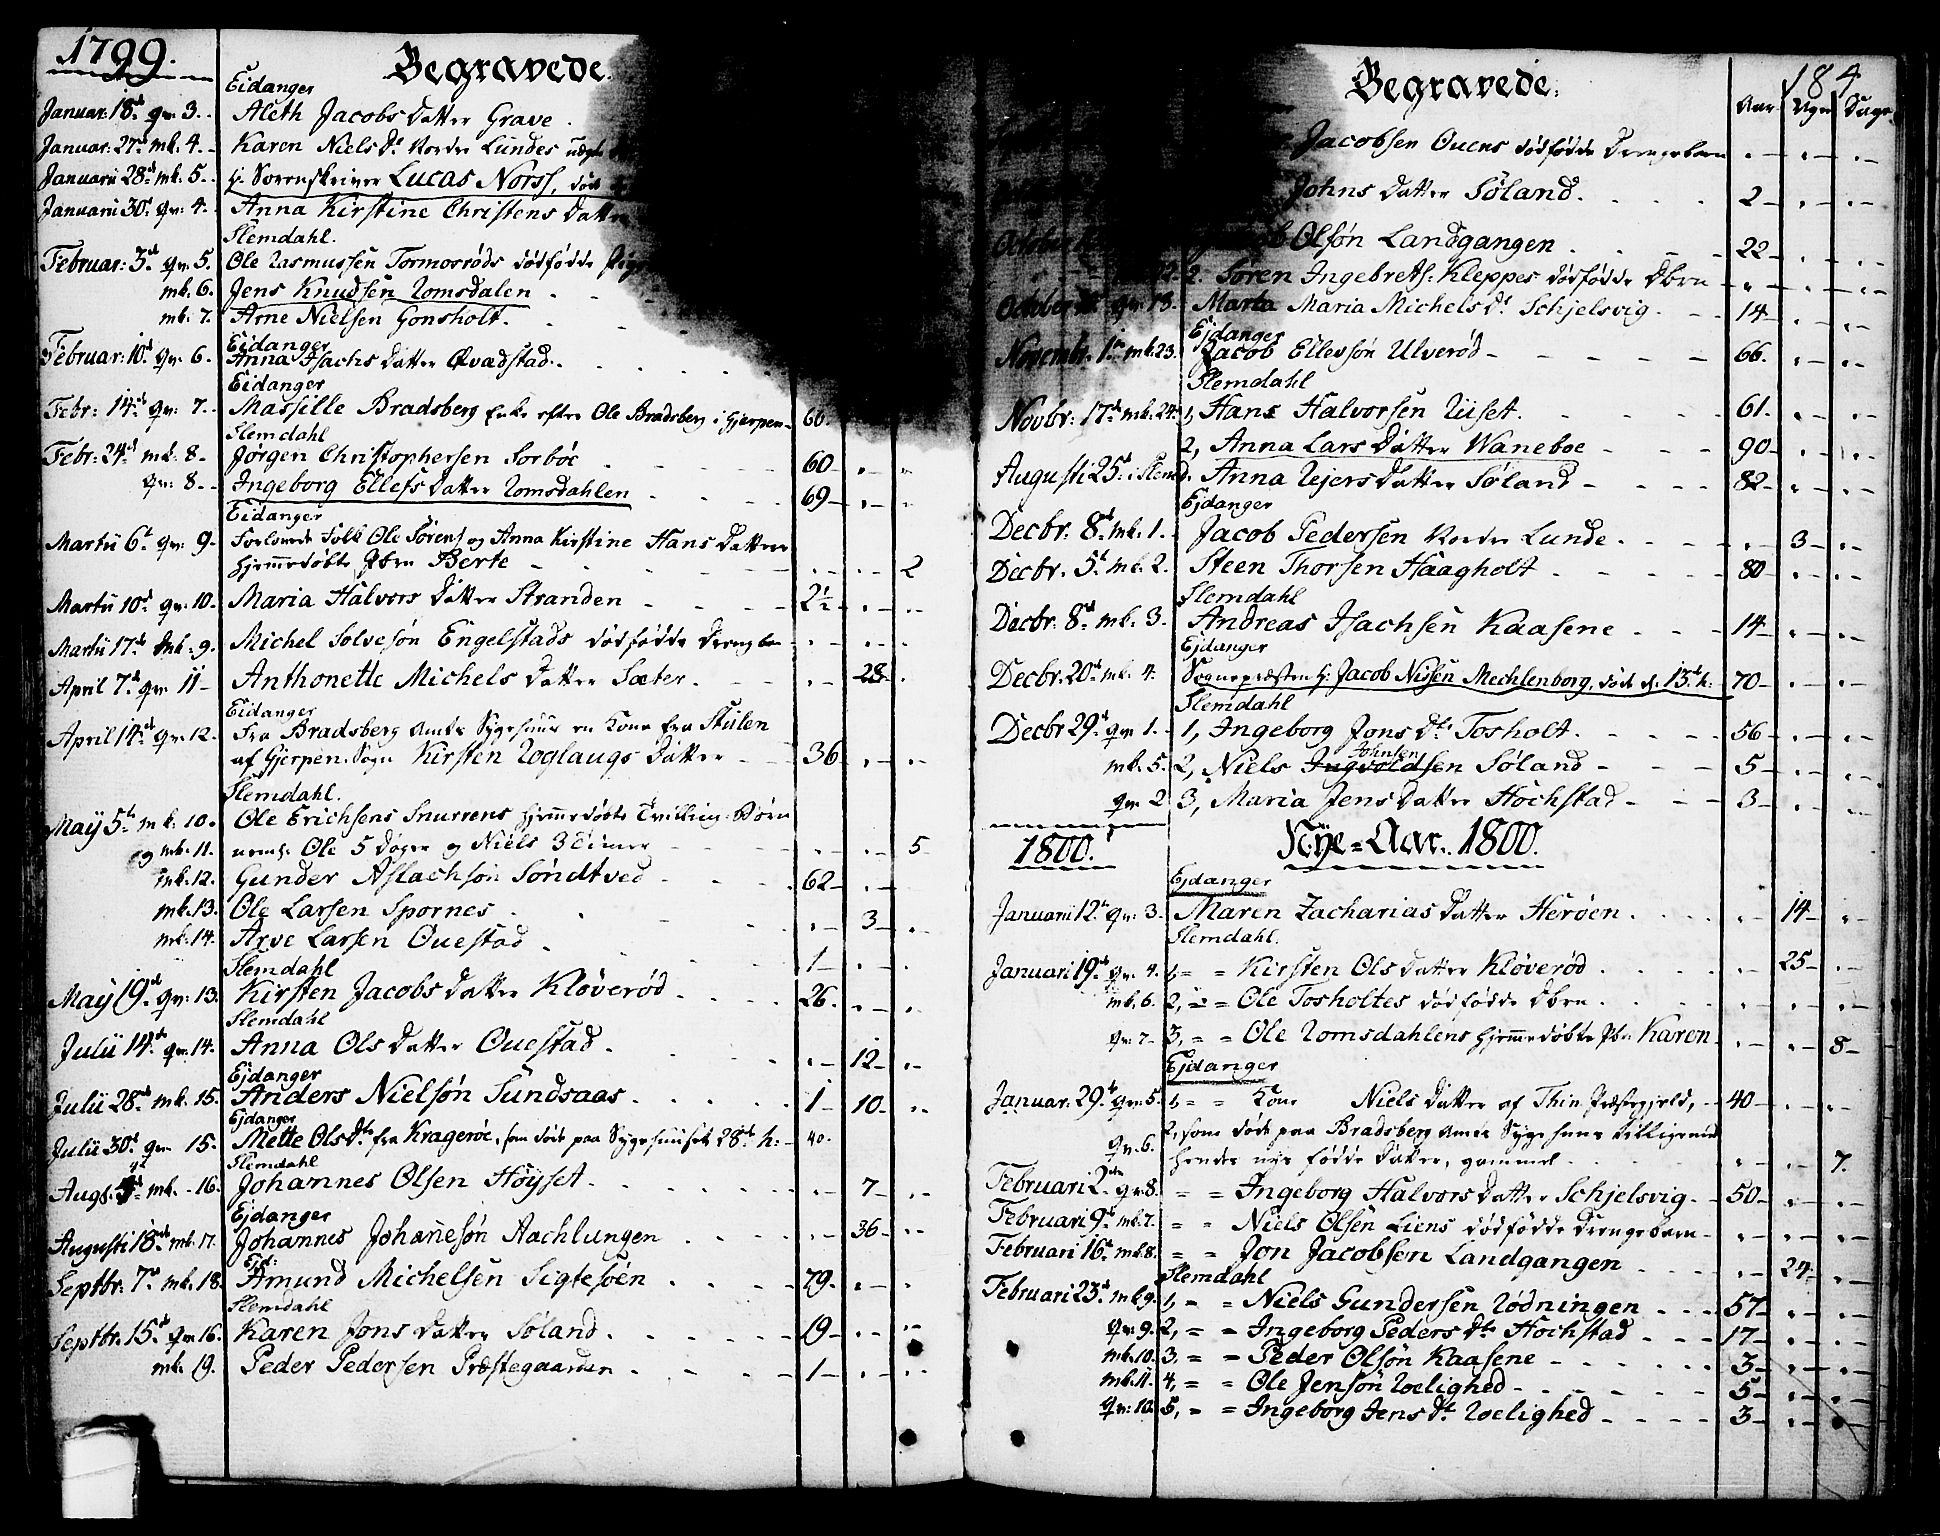 1799.
Begravede.
Eidanger
Januar: 18d qv: 3. Aleth Jacobs Datter Grave
Januar: 27d mk. 4. Karen Niels Dr Nordre Lundes
Januarii 28d mk. 5. Hr Sorenskriver Lucas Norss, død
Januarii 30d qv: 4. Anna Kirstine Christens Datter
Slemdahl.
Februar: 3d qv: 5. Ole Rasmussen Tormosrøds dødfødde
mk. 6. Jens Knudsen Romsdalen
mk. 7. Arne Nielsen Gonsholt.
Eidanger
Februar: 10d qv: 6. Anna Isachs Datter Qvadstad.
Eidanger
Febr: 14d qv: 7. Massille Bradsberg Enke efter Ole Bradsberg i Gjerpen 60.
Slemdahl
Febr: 24d mk. 8 Jørgen Christophersen Sorbøe 60
qv: 8 Ingeborg Ellefs Datter Romsdahlen 69
Eidanger
Martii 6t qv: 9. Forlovede Folk Ole Sørens: og Anna Kirstine Hans Datters
hjemmedøbte Berte 2
Martii 10d qv: 10. Maria Halvors Datter Stranden 2½
Martii 17d mk: 9. Michel Solvesøn Engelstads dødfødde
April 7d qv: 11 Anthonette Michels Datter Sæter. 28
Eidanger
April 14d qv: 12. Fra Bradsberg Amts Sygehuus en Kone fra Skien
af Gjerpen Sogn Kirsten Roglaugs Datter 36
Slemdahl.
Maij 5te mk: 10. Ole Erichsens Snurrens hjemmedøbte Tvilling-Børn
og mk. 11. nemL. Ole 5 Dager og Niels 3 Timer 5
mk. 12. Gunder Aslachsøn Søndtved 62
mk. 13. Ole Larsen Spornes 3
mk. 14. Arve Larsen Ouestad 1
Slemdahl
Maij 19d qv: 13. Kirsten Jacobs Datter Kløverød 26.
Slemdahl
Julii 14de qv: 14. Anna Ols Datter Ouestad. 12
Ejdanger
Julii 28de mk. 15. Anders Nielsøn Sundsaas 1 10
Ejdanger
Julii 30d qv: 15. Mette Ols Dr fra Kragerøe, som døde paa Sygehuuset 28de h: 40.
Slemdahl
Augs. mk. 16. Johannes Olsen Høyset 7
Ejdanger
Augusti 18de mk. 17. Johannes Johanesøn Aachlungen 36
Ejd:
Septbr: 7d mk. 18. Amund Michelsen Sigtesøen 79.
Slemdahl
Septbr. 15d qv: 16. Karen Jons Datter Søland. 19
mk. 19. Peder Pedersen Præstegaarden 1
184
Begravede.
Aar Uger Dage
Jacobsen Ouens dødfødde Drengebarn
Johns Datter Søland. 2
October Olsøn Landgangen 22
2. Søren Ingebrets: Kleppes dødfødde
October qv: 18. Maria Michels Dr Schjelsvig. 14
Ejdanger
Novembr. 1ste mk. 23. Jacob Ellevsøn Ulverød 66.
Slemdahl
Novbr: 17d mk. 24. 1, Hans Halvorsen Riiset. 61.
2, Anna Lars Datter Waneboe 90
Augusti 25d i Slemd. Anna Rejers Datter Søland 82
Ejdanger
Decbr. 8d mk. 1. Jacob Pedersen Nordre Lunde. 3
Decbr. 5d mk. 2. Steen Thorsen Haagholt 80
Slemdahl
Decbr: 8d mk. 3. Andreas Isachsen Kaasene 14
Ejdanger
Decbr. 20d mk. 4. Sognepræsten Hr Jacob Nissen Mechlenborg, død d. 13d h: 70
Slemdahl
Decbr 29d qv: 1. 1, Ingeborg Jons Dr Tosholt. 56
Johnsen
mk. 5. 2, Niels Ingvoldsen Søland 5
qv: 2 3, Maria Jens Datter Hochstad 3
1800. Nÿe-Aar. 1800.
Ejdanger
Januarii 12d qv: 3. Maren Zacharias Datter Herøen. 14
Slemdahl.
Januari 19d qv: 4. 1, Kirsten Ols Datter Kløverød 25
mk. 6. 2, Ole Tosholtes dødfødde
qv: 7 3, Ole Romsdahlens hjemmedøbte Karen 8
Ejdanger
Januar. 29d qv: 5. 1, Kone Niels Datter af Thin Præstegield, 40
qv: 6. 2, som døde paa Bradsberg Amts Sygehuus tilligemed
hendes nye fødde Datter, gammel 7.
Februari 2den qv: 8. Ingeborg Halvors Datter Schjelsvig. 50
Februari 9d mk. 7. Niels Olsen Liens dødfødde Drengebarn
Februari 16d mk. 8. Jon Jacobsen Landgangen 24
Slemdahl
Februari 23d mk. 9. 1, Niels Gundersen Rødningen 57
qv: 9. 2, Ingeborg Peders Dr Hochstad 17
mk. 10. 3, Peder Olsøn Kaasene 3
mk. 11. 4, Ole Jensøn Roelighed 5
qv: 10. 5, Ingeborg Jens Dr Roelighed 3